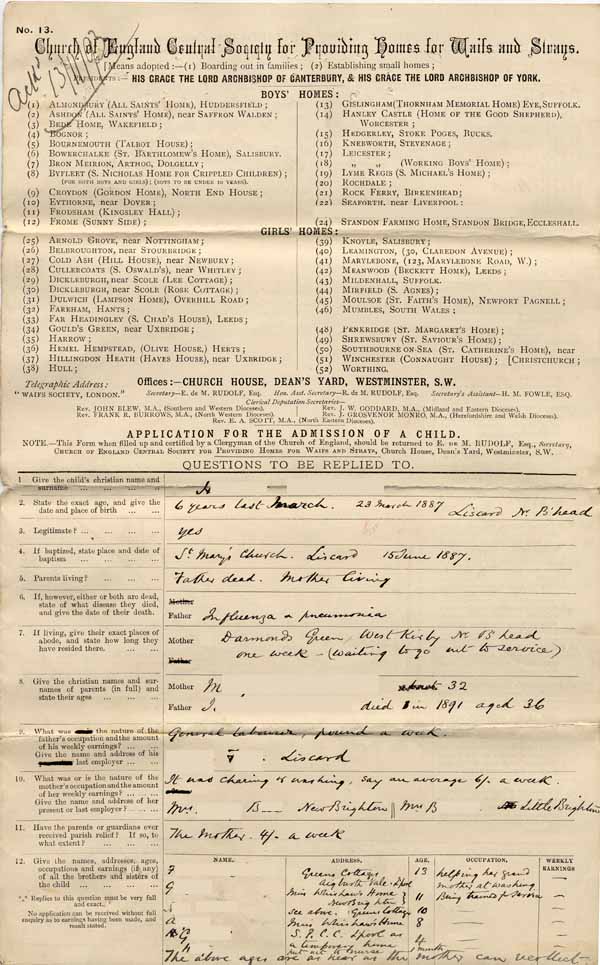 No. 13.
Church of England Central Society for Providing Homes for Waifs and Strays.
(Means adopted :—(1) Boarding out in families; (2) Establishing small homes;
PRESIDENTS:— HIS GRACE THE LORD ARCHBISHOP OF CANTERBURY, & HIS GRACE THE LORD ARCHBISHOP OF YORK.
BOYS' HOMES:
(1) Almondbury (All Saints' Home), Huddersfield;
(2) Ashdon (All Saints' Home), near Saffron Walden;
(3) Bede Home, Wakefield;
(4) Bognor;
(5) Bournemouth (Talbot House);
(6) Bowerchalke (St. Barthlomew's Home), Salisbury.
(7) Bron Meirion, Arthog, Dolgelly;
(8) Byfleet (S. Nicholas Home for Crippled Children);
(for both boys and girls); (boys to be under 10 years).
(9) Croydon (Gordon Home), North End House;
(10) Eythorne, near Dover;
(11) Frodsham (Kingsley Hall);
(12) Frome (Sunny Side);
(13) Gislingham (Thornham Memorial Home) Eye, Suffolk.
(14) Hanley Castle (Home of the Good Shepherd),
Worcester;
(15) Hedgerley, Stoke Poges, Bucks.
(16) Knebworth, Stevenage;
(17) Leicester;
(18) „ „ (Working Boys' Home);
(19) Lyme Regis (S. Michael's Home);
(20) Rochdale;
(21) Rock Ferry, Birkenhead;
(22) Seaforth, near Liverpool:
(24) Standon Farming Home, Standon Bridge, Eccleshall.
GIRLS' HOMES:
(25) Arnold Grove, near Nottingham;
(26) Belbroughton, near Stourbridge;
(27) Cold Ash (Hill House), near Newbury;
(28) Cullercoats (S. Oswald's), near Whitley;
(29) Dickleburgh, near Scole (Lee Cottage);
(30) Dickleburgh, near Scole (Rose Cottage);
(31) Dulwich (Lampson Home), Overhill Road;
(32) Fareham, Hants;
(33) Far Headingley (S. Chad's House), Leeds;
(34) Gould's Green, near Uxbridge;
(35) Harrow;
(36) Hemel Hempstead, (Olive House,) Herts;
(37) Hillingdon Heath (Hayes House), near Uxbridge;
(38) Hull;
(39) Knoyle, Salisbury;
(40) Leamington, (30, Claredon Avenue);
(41) Marylebone, (123, Marylebone Road, W.);
(42) Meanwood (Beckett Home), Leeds;
(43) Mildenhall, Suffolk.
(44) Mirfield (S. Agnes);
(45) Moulsoe (St. Faith's Home), Newport Pagnell;
(46) Mumbles, South Wales;
(48) Penkridge (St. Margaret's Home);
(49) Shrewsbury (St. Saviour's Home);
(50) Southbourne-on-Sea (St. Catherine's Home), near
(51) Winchester (Connaught House); [Christchurch;
(52) Worthing.
Telegraphic Address:
"WAIFS SOCIETY, LONDON."
Offices:—CHURCH HOUSE, DEAN'S YARD, WESTMINSTER, S.W.
Secretary—E. de M. RUDOLF, Esq. Hon. Asst. Secretary—R. de M. RUDOLF, Esq. Secretary's Assistant—H. M. FOWLE, ESQ.
Clerical Deputation Secretaries—
Rev. JOHN BLEW, M.A., (Southern and Western Dioceses).
Rev. FRANK R. BURROWS, M.A., (North Western Dioceses).
Rev. J. W. GODDARD, M.A., (Midland and Eastern Dioceses).
Rev. J. GROSVENOR MONRO, M.A., (Herefordshire and Welsh Dioceses).
Rev. E. A. SCOTT, M.A., (North Eastern Dioceses).
APPLICATION FOR THE ADMISSION OF A CHILD.
NOTE.—This Form when filled up and certified by a Clergyman of the Church of England, should be returned to E. de M. RUDOLF, Esq., Secretary,
Church of England Central Society for Providing Homes for Waifs and Strays, Church House, Dean's Yard, Westminster, S.W.
QUESTIONS TO BE REPLIED TO.
1 Give the child's christian name and
surname
H
2. State the exact age, and give the
date and place of birth
6 years last March. 23 March 1887 Liscard Nr B'head
3. Legitimate?
yes
4. If baptized, state place and date of
baptism
St Mary's Church. Liscard 15 June 1887.
5. Parents living?
Father dead. Mother living
6. If, however, either or both are dead,
state of what disease they died,
and give the date of their death.
Mother
Father Influenza & pneumonia
7. If living, give their exact places of
abode, and state how long they
have resided there.
Mother Darmonds Green, West Kirby Nr B'head
one week - (waiting to go out to service)
Father
8. Give the christian names and sur-
names of parents (in full) and
state their ages
Mother M. about 32
Father J. died in 1891 aged 36
9. What was the nature of the
father's occupation and the amount
of his weekly earnings?
Give the name and address of his
last employer
General Labourer, pound a week.
Liscard
10. What was or is the nature of the
mother's occupation and the amount
of her weekly earnings?
Give the name and address of her
present or last employer?
It was charing & washing, say an average 6/. a week.
Mrs. B— New Brighton Mrs B Little Brighton
11. Have the parents or guardians ever
received parish relief? If so, to
what extent?
The Mother. 4/- a week
12. Give the names, addresses, ages,
occupations and earnings (if any)
of all the brothers and sisters of
the child
NAME. ADDRESS. AGE. OCCUPATION. WEEKLY EARNINGS
F Greens Cottage 13 helping her grand
Aigburth Vale. L'pool mother at washing
G Miss Whishaw's Home 11 Being trained for service
New Brighton
see above. Greens Cottage 10
A Miss Whishaw's Home 8
S.P.C.C. L'pool as 4
a temporary home
"." Replies to this question must be very full
and exact.
No application can be received without full
enquiry as to earnings having been made, and
result stated.
The above ages are as near as the mother can recollect